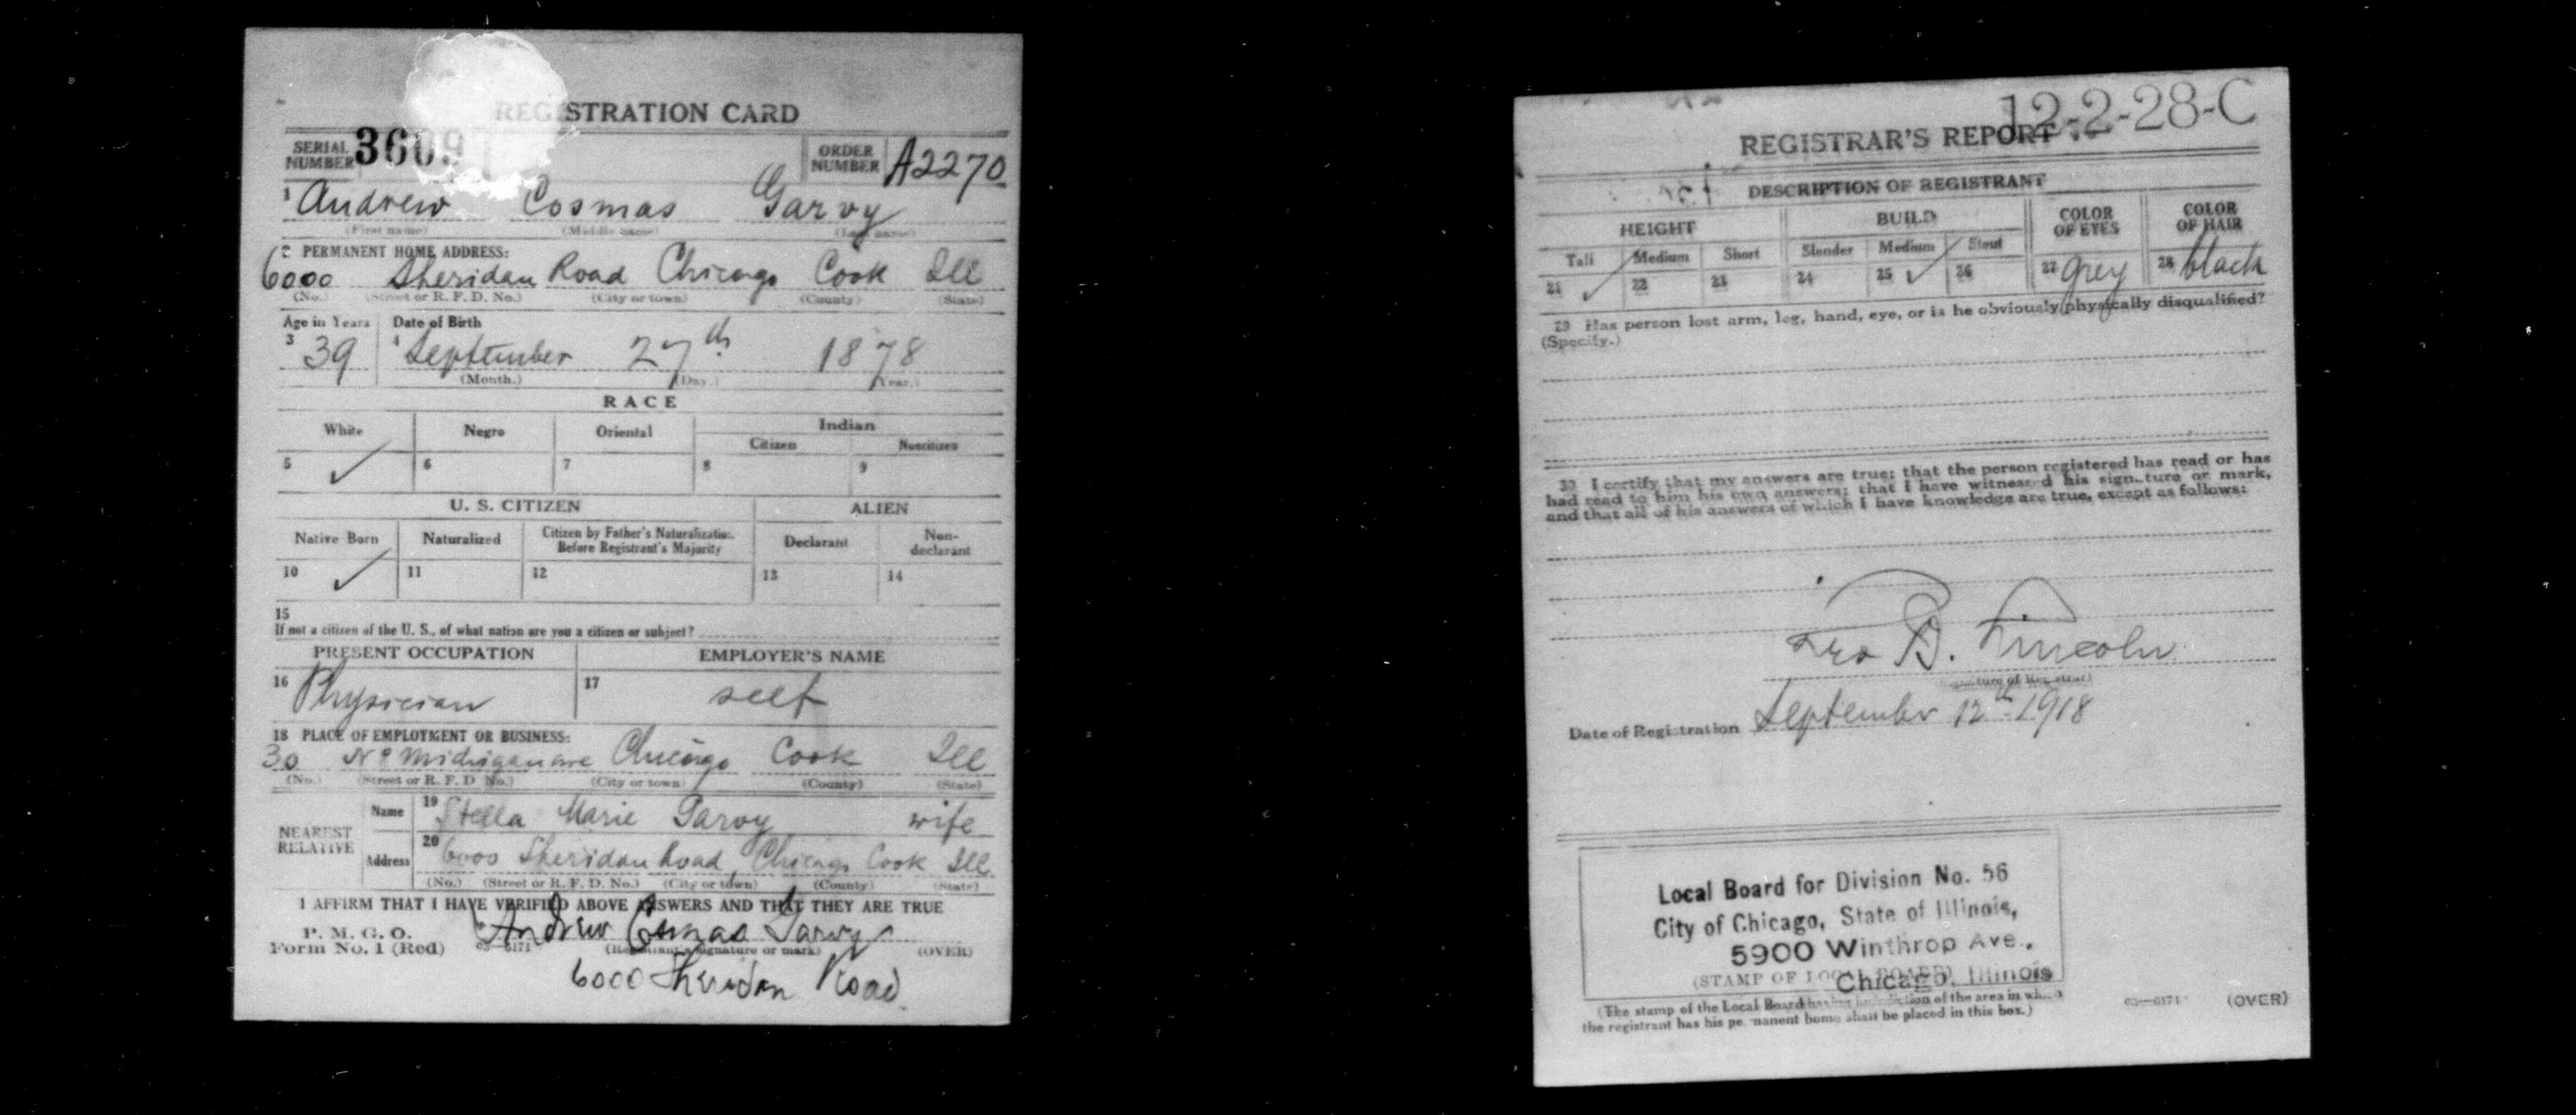 REGISTRATION CARD
SERIAL NUMBER 3609
ORDER NUMBER A2270
1 Andrew Cosmas Garvy
(First name) (Middle name) (Last name)
2 PERMANENT HOME ADDRESS:
6000 Sheridan Road Chicago Cook Ill
(No.) (Street or R. F. D. No.) (City or town) (County) (State)
Age in Years Date of Birth
3 39 4 September 27th 1878
(Month.) (Day.) (Year.)
RACE
White Negro Oriental Indian
Citizen Noncitizen
5 ✓ 6 7 8 9
U. S. CITIZEN ALIEN
Native Born Naturalized Citizen by Father's Naturalization Before Registrant's Majority Declarant Non-declarant
10 ✓ 11 12 13 14
15
If not a citizen of the U. S., of what nation are you a citizen or subject?
PRESENT OCCUPATION EMPLOYER'S NAME
16 Physician 17 self
18 PLACE OF EMPLOYMENT OR BUSINESS:
30 No Michigan ave Chicago Cook Ill
(No.) (Street or R. F. D. No.) (City or town) (County) (State)
NEAREST RELATIVE
Name 19 Stella Marie Garvy wife
Address 20 6000 Sheridan Road Chicago Cook Ill
(No.) (Street or R. F. D. No.) (City or town) (County) (State)
I AFFIRM THAT I HAVE VERIFIED ABOVE ANSWERS AND THAT THEY ARE TRUE
P. M. G. O.
Form No. 1 (Red) 03—6171 Andrew Cosmas Garvy
(Registrant's signature or mark) (OVER)
6000 Sheridan Road
12-2-28-C
REGISTRAR'S REPORT
DESCRIPTION OF REGISTRANT
HEIGHT BUILD COLOR OF EYES COLOR OF HAIR
Tall Medium Short Slender Medium Stout
21 ✓ 22 23 24 25 ✓ 26 27 grey 28 black
29 Has person lost arm, leg, hand, eye, or is he obviously physically disqualified?
(Specify.)
30 I certify that my answers are true; that the person registered has read or has
had read to him his own answers; that I have witnessed his signature or mark,
and that all of his answers of which I have knowledge are true, except as follows:
B. Lincoln
(Signature of Registrar)
Date of Registration September 12th 1918
Local Board for Division No. 56
City of Chicago, State of Illinois,
5900 Winthrop Ave.,
Chicago, Illinois
(STAMP OF LOCAL BOARD)
(The stamp of the Local Board having jurisdiction of the area in which
the registrant has his permanent home shall be placed in this box.)
03—6171 (OVER)